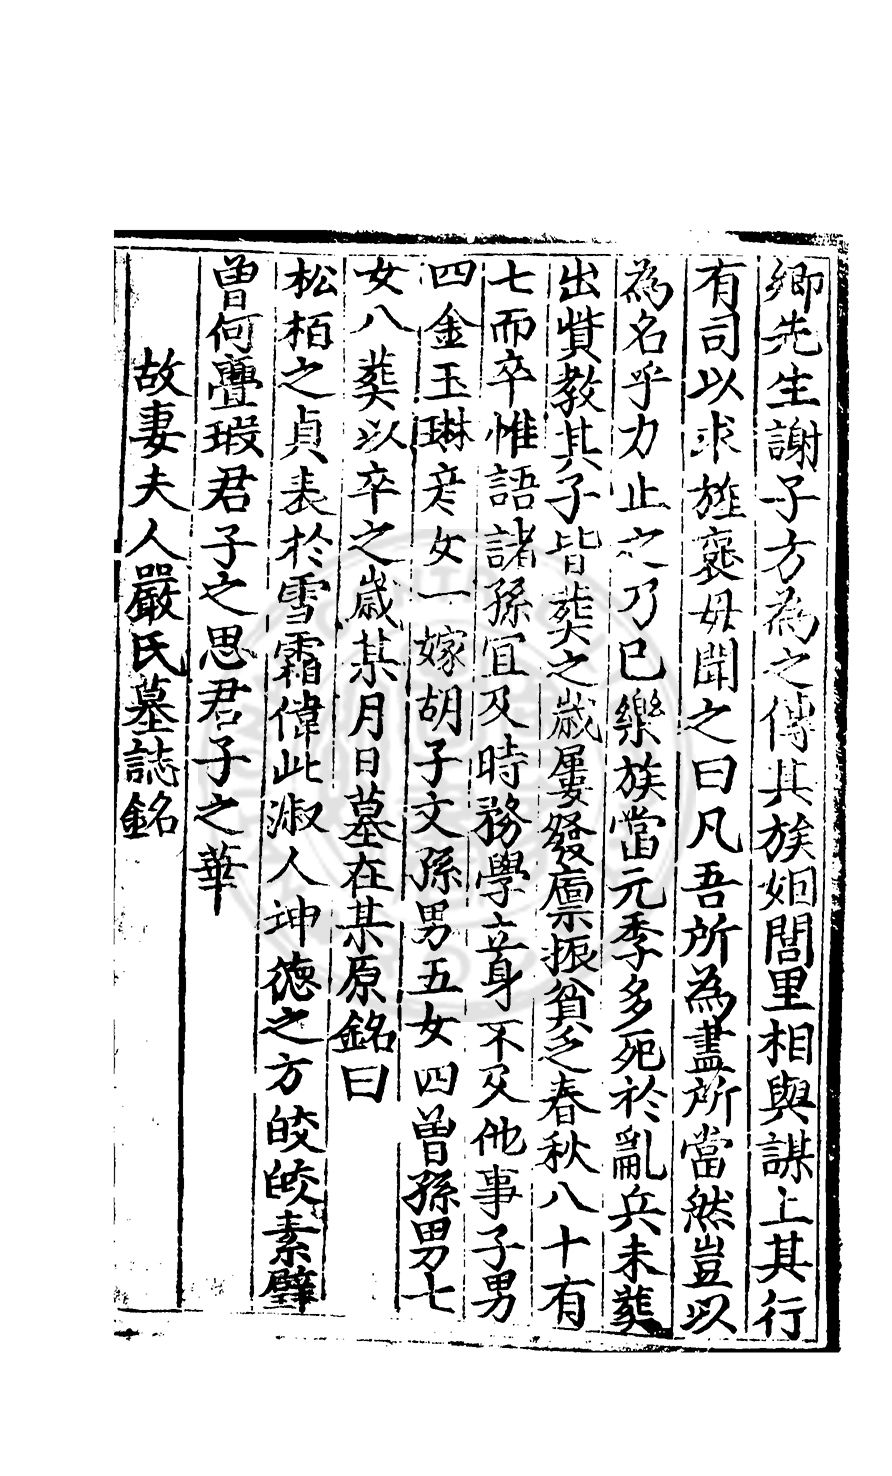 鄉先生謝子方為之傳其族姻閭里相與謀上其行
有司以求旌褒母聞之曰凡吾所為盡所當然豈以
為名乎力止之乃已樂族當元季多死於亂兵未葬
出貲教其子皆葬之歲屢發廩振貧乏春秋八十有
七而卒惟語諸孫宜及時務學立身不及他事子男
四金玉琳彦女一嫁胡子文孫男五女四曾孫男七
女八葬以卒之歲某月日墓在某原銘曰
松栢之貞表於雪霜偉此淑人坤德之方皎皎素璧
曾何亹瑕君子之思君子之華
故妻夫人嚴氏墓誌銘